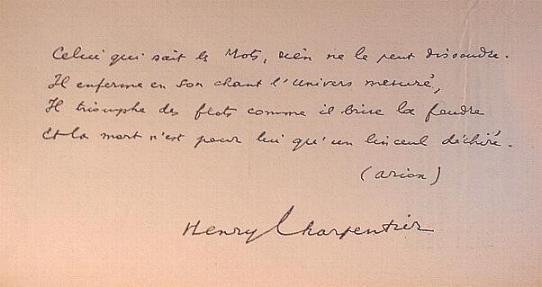 Celui qui sait les Mots, rien ne le peut dissoudre.
Il enferme en son chant l'univers mesuré,
Il triomphe des flots comme il brise la foudre
Et la mort n'est pour lui qu'un linceul déchiré.
(Arion)
Henry Charpentier